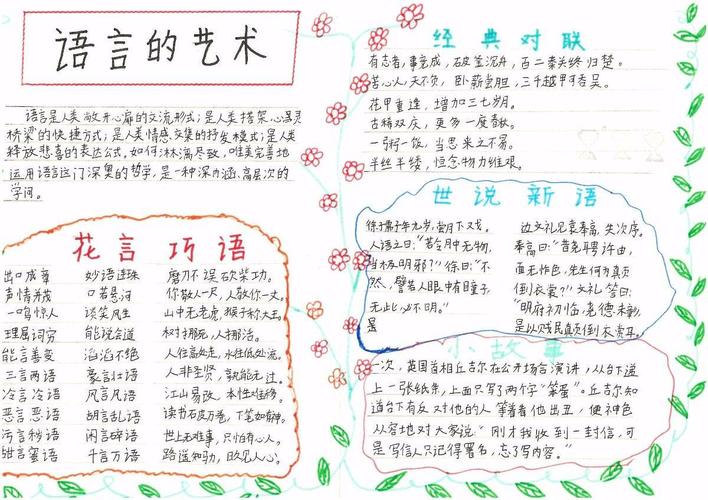 语言的艺术
语言是人类敞开心扉的交流形式;是人类搭架心灵
桥梁的快捷方式;是人类情感交集的抒发模式;是人类
释放悲喜的表达公式。如何淋漓尽致、唯美完善地
运用语言这门深奥的哲学,是一种深内涵、高层次的
学问。
花言巧语
出口成章 妙语连珠 磨刀不误砍柴功。
声情并茂 口若悬河 你敬人一尺,人敬你一丈。
一鸣惊人 谈笑风生 山中无老虎,猴子称大王。
理屈词穷 能说会道 树挪死,人挪活。
能言善变 滔滔不绝 人往高处走,水往低处流。
三言两语 豪言壮语 人非圣贤,孰能无过。
冷言冷语 风言风语 江山易改,本性难移。
恶言恶语 胡言乱语 读书破万卷,下笔如有神。
污言秽语 闲言碎语 世上无难事,只怕有心人。
甜言蜜语 千言万语 路遥知马力,日久见人心。
经典对联
有志者,事竟成,破釜沉舟,百二秦关终归楚。
苦心人,天不负,卧薪尝胆,三千越甲可吞吴。
花甲重逢,增加三七岁月。
古稀双庆,更多一度春秋。
一粥一饭,当思来之不易。
半丝半缕,恒念物力维艰。
世说新语
徐孺子年九岁,尝月下戏。
人语之曰:“若令月中无物,
当极明邪?”徐曰:“不
然,譬若人眼中有瞳子,
无此必不明。”
边文礼见袁奉高,失次序。
奉高曰:“昔尧聘许由,
面无怍色,先生何为颠
倒衣裳?”文礼答曰:
“明府初临,尧德未彰,
是以贱民颠倒衣裳耳。
小故事
一次,英国首相丘吉尔在公开场合演讲,从台下递
上一张纸条,上面只写了两个字“笨蛋”。丘吉尔知
道台下有反对他的人等着看他出丑,便神色
从容地对大家说:“刚才我收到一封信,可
是写信人只记得署名,忘了写内容。”